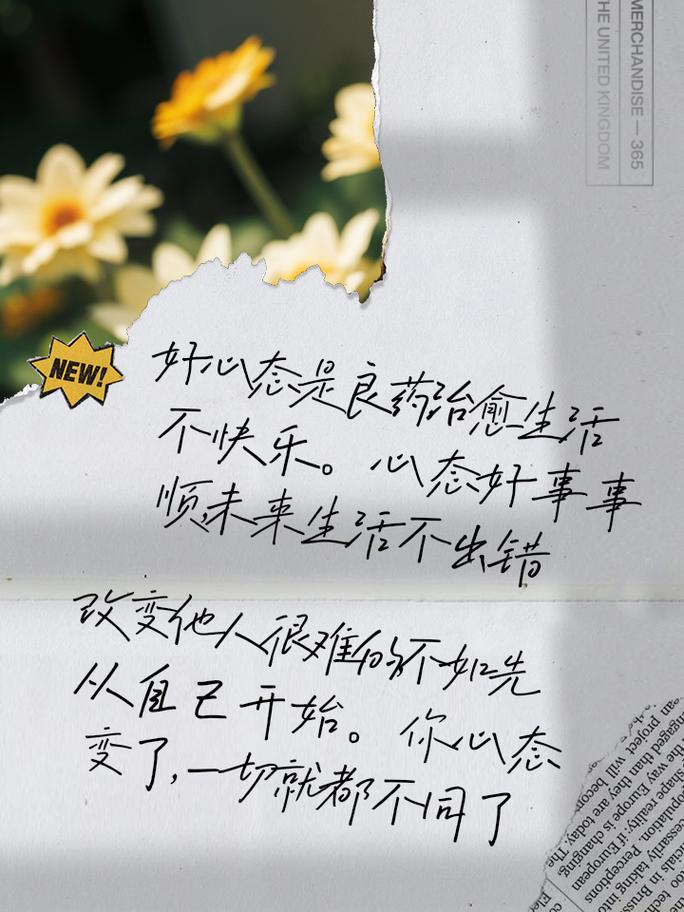 MERCHANDISE — 365
THE UNITED KINGDOM
NEW!
好心态是良药治愈生活
不快乐。心态好事事
顺,未来生活不出错
改变他人很难的不如先
从自己开始。你心态
变了,一切就都不同了
project will
engaged than they are today. The
the way Europe is changing
shape reality: if European
population. Perceptions
necessarily taking into
officials in Brus
too tech